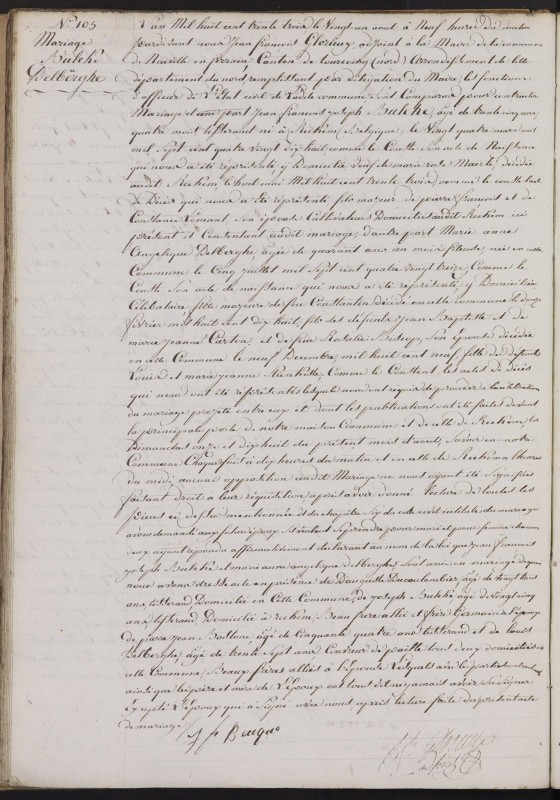 N° 105
Mariage
Butché
Delberghe
L'an Mil huit cent trente trois le vingt un aout à Neuf heures du matin
pardevant nous Jean francois Glorieux adjoint à la Maire de la commune
de Neuville en ferrain Canton de tourcoing (nord) Arrondissement de lille
département du nord remplissant par délégation du Maire, les fonctions
d'officier de l'Etat civil de ladite commune, sont Comparus pour contracter
Mariage d'une part Jean francois joseph Butché, âgé de trente cinq ans
quatre mois tisserand né à Reckem, Belgique, le vingt quatre mars
mil sept cent quatre vingt dix huit comme le Conste Son acte de Naissance
qui nous a été représenté, y Domicilié, veuf de marie rose décédée
audit Reckem, le huit mai Mil huit cent trente trois, comme le conste l'acte
de Décès qui nous a été représenté, fils majeur de pierre francois et de
Constance Son épouse Cultivateurs Domiciliés audit Reckem ici
présents et Consentant audit mariage, d'autre part Marie anne
Angelique Delberghe âgée de quarante ans un mois fileuse, née en cette
Commune le Cinq juillet mil sept cent quatre vingt treize, Comme le
Conste Son acte de naissance qui nous a été représenté, y Domiciliée
Célibataire, fille majeure de feu Constantin décédé en cette commune le douze
février mil huit cent dix huit, fils des défunts Jean Baptiste et de
marie jeanne Carton, et de feue Rosalie Son Epouse décédée
en cette Commune le neuf Decembre mil huit cent neuf fille des défunts
Louis et marie jeanne Comme le Constent les actes de Décès
qui nous ont été représentés lesquels nous ont requis de procéder à la célébration
du mariage projeté entre eux et dont les publications ont été faites devant
la principale porte de notre maison Commune et de celle de Reckem, les
Dimanches onze et dix huit du présent mois d'aout, Savoir en notre
Commune Chaque fois à dix heures du matin et en celle de Reckem à l'heure
du midi, aucune opposition audit Mariage ne nous ayant été Signifiée
faisant droit à leur réquisition, après avoir donné lecture de toutes les
pièces ci dessus mentionnées et du chapitre Six du code civil intitulé du mariage
avons demandé aux futurs époux s'ils veulent se prendre pour mari et pour femme chacun
d'eux ayant répondu affirmativement déclarons au nom de la loi que jean francois
joseph Butché et marie anne angelique Delberghe, sont unis en mariage de quoi
nous avons dressé acte en présence de âgé de vingt huit
ans tisserand Domicilié en Cette Commune, de joseph Butché, âgé de vingt cinq
ans tisserand Domicilié à reckem, Beau frère allié et frère Germain de l'époux
de pierre jean âgé de Cinquante quatre ans tisserand et de Louis
Delberghe, âgé de trente Sept ans Couvreur de paille tous deux domiciliés en
cette Commune, Beaux frères alliés à l'épouse lesquels
ainsi que le père et mère de l'Epoux ont tous dit ne jamais avoir su signer
Excepté l'Epoux que a Signé avec nous, après lecture faite du présent acte
de mariage.